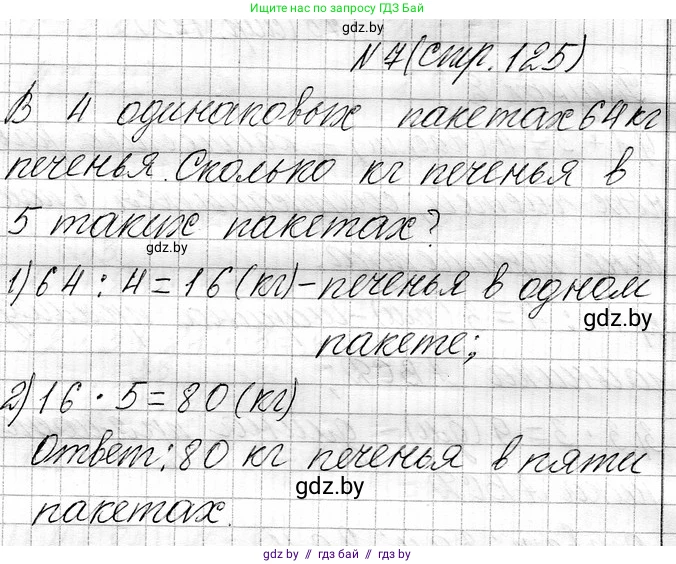 Ищите нас по запросу ГДЗ Бай
gdz.by
N 7 (стр. 125)
В 4 одинаковых пакетах 64 кг
печенья. Сколько кг печенья в
5 таких пакетах?
gdz.by
1) 64 : 4 = 16 (кг) – печенья в одном
gdz.by
пакете;
2) 16 · 5 = 80 (кг)
Ответ: 80 кг печенья в пяти
gdz.by
пакетах.
gdz by // гдз бай // гдз by